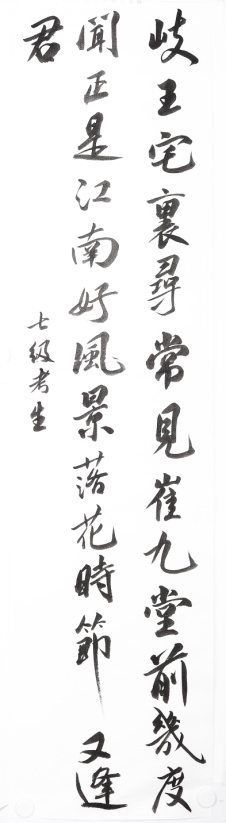 歧王宅裏尋常見崔九堂前幾度
聞正是江南好風景落花時節又逢
君
七級考生